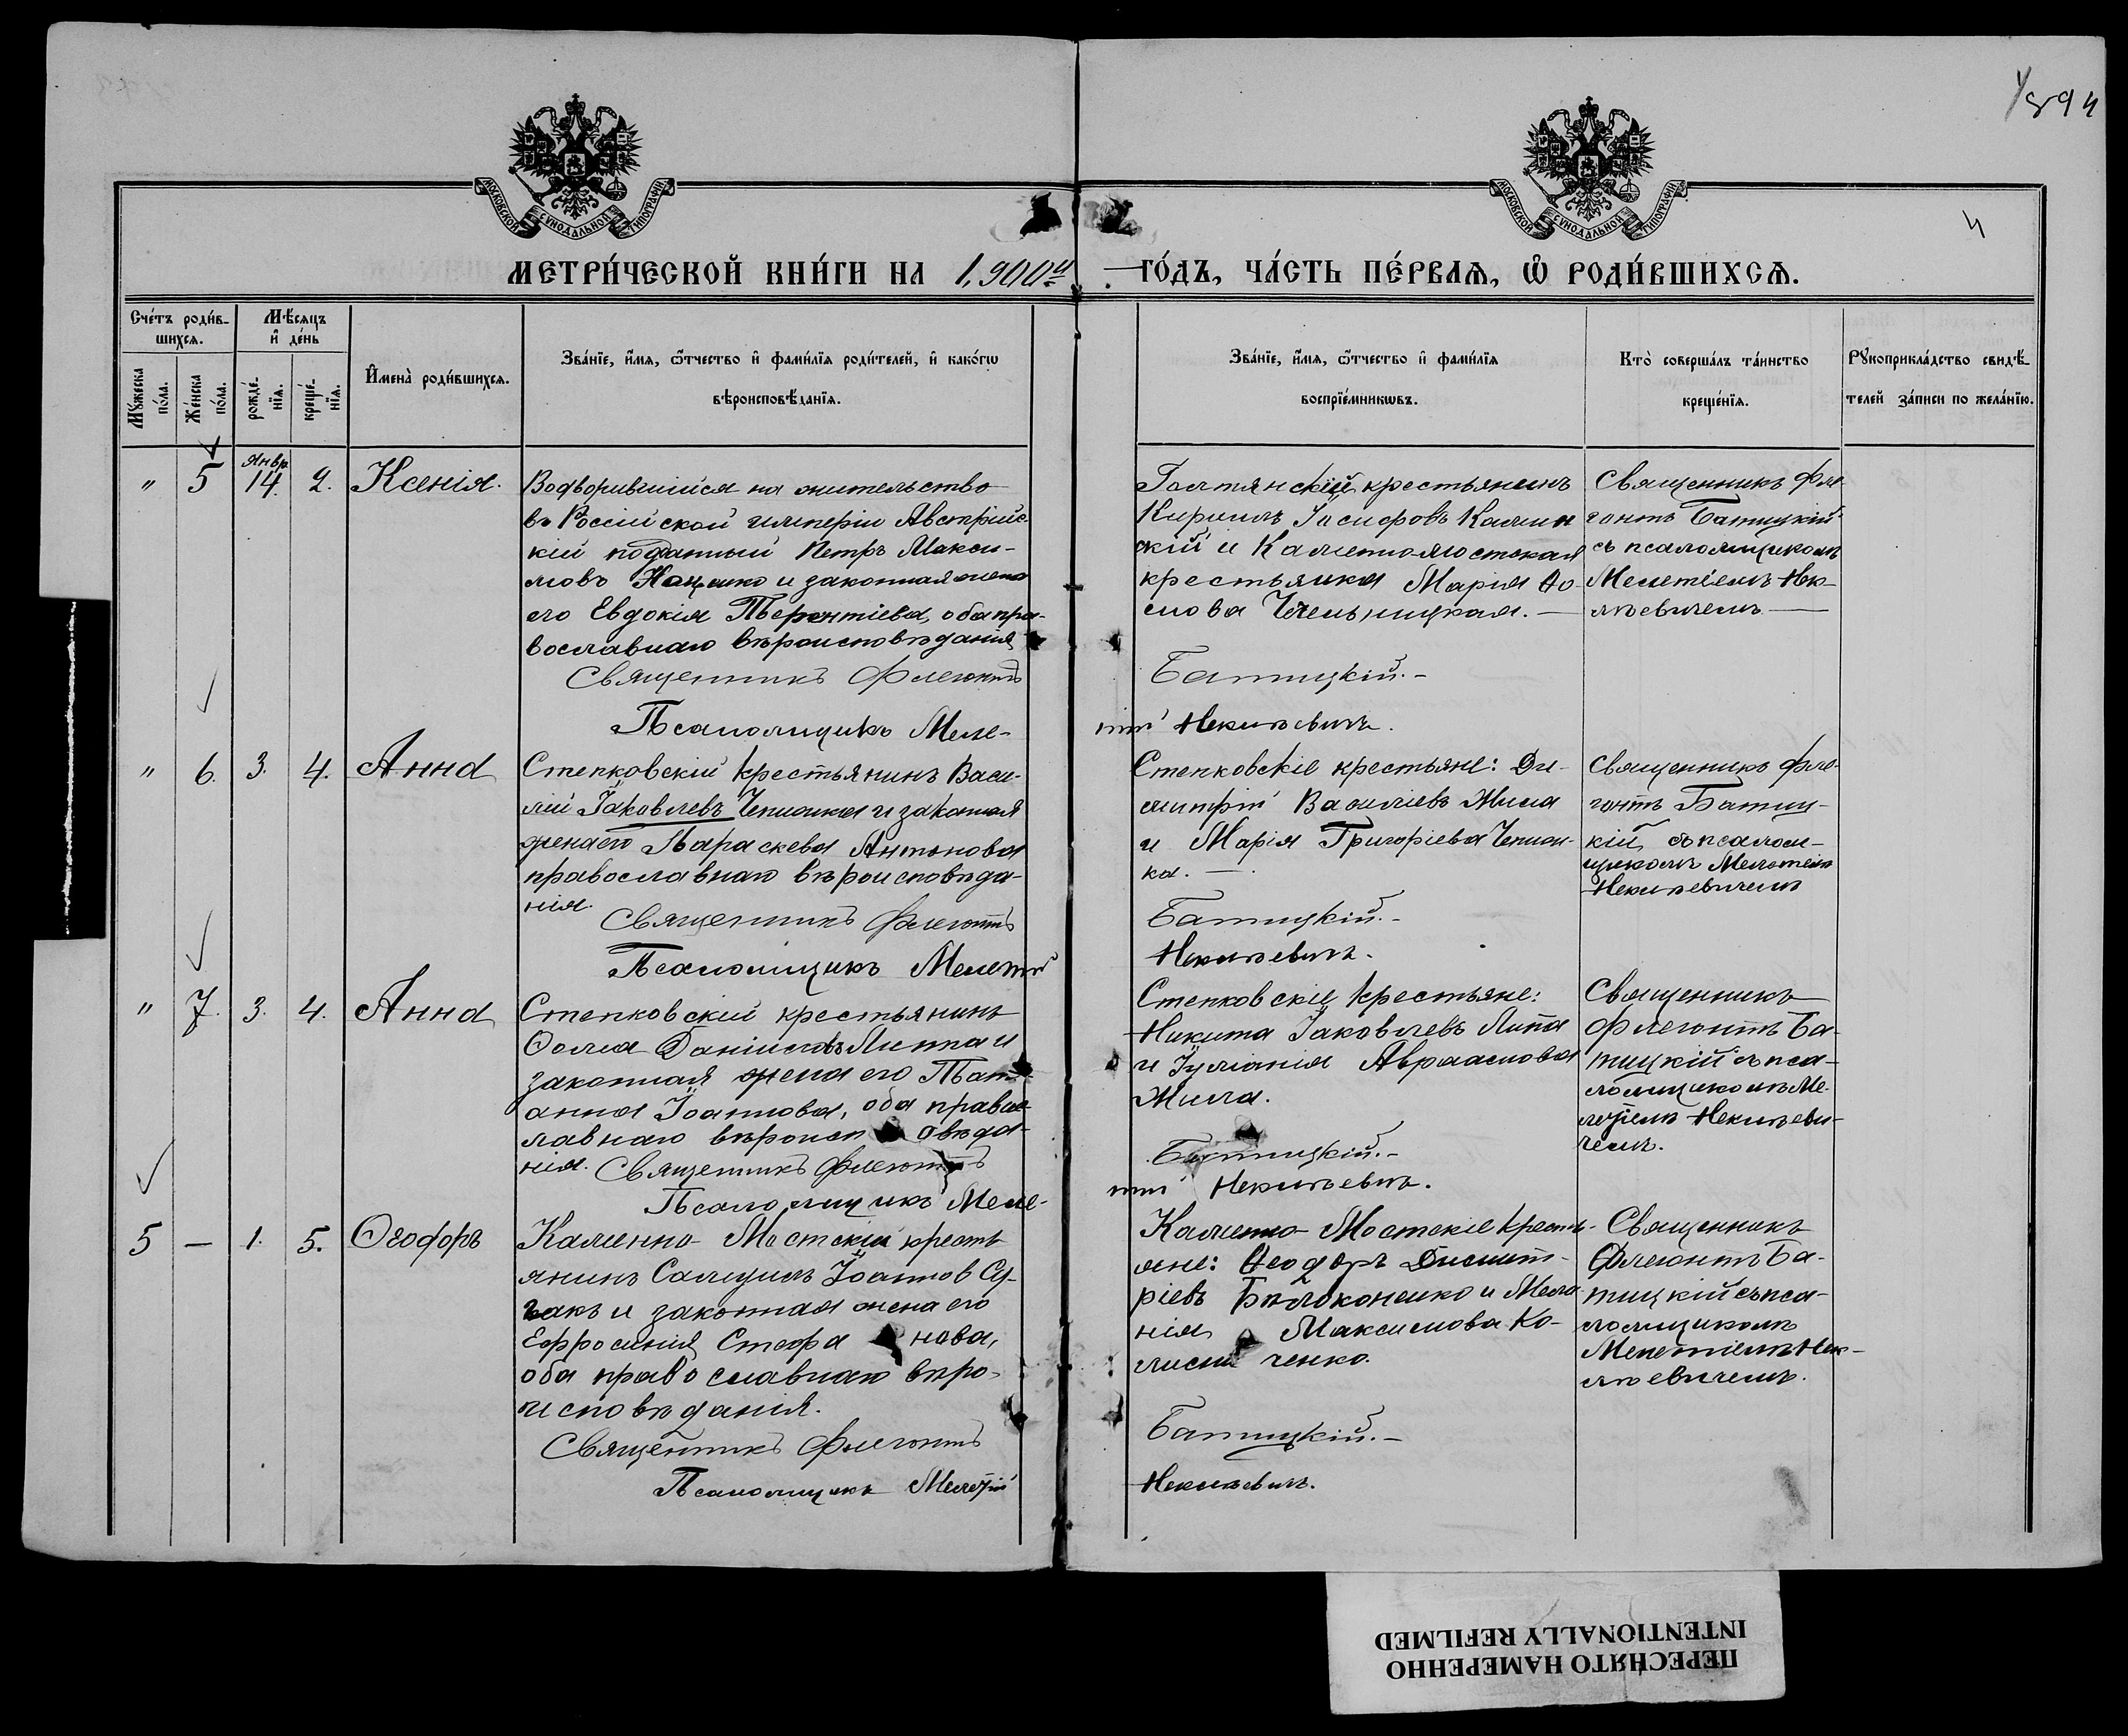 4
894
МОСКОВСКОЙ СѴНОДАЛЬНОЙ ТИПОГРАФІИ
МОСКОВСКОЙ СѴНОДАЛЬНОЙ ТИПОГРАФІИ
4
МЕТРИ́ЧЕСКОЙ КНИ́ГИ НА 1900й ГО́ДЪ, ЧА́СТЬ ПЕ́РВАѦ, Ѿ РОДИ́ВШИХСѦ.
Сче́тъ роди́в-
шихсѧ.
Мѣ́сѧцъ
и҆ де́нь
Мꙋ́жеска
по́ла.
Же́нска
по́ла.
рожде́-
нїѧ.
креще́-
нїѧ.
И҆мена̀ роди́вшихсѧ.
Зва́нїе, и҆́мѧ, ѻ҆́тчество и҆ фами́лїѧ роди́телей, и҆ како́гѡ
вѣроисповѣ́данїѧ.
Зва́нїе, и҆́мѧ, ѻ҆́тчество и҆ фами́лїѧ
воспрїе́мникѡвъ.
Кто̀ соверша́лъ та́инство
креще́нїѧ.
Рꙋкоприкла́дство свидѣ́-
телей за́писи по жела́нїю.
" 5 Янвр. 14. 2. Ксенія.
Водворившійся на жительство
въ Россійской имперіи Австрійс-
кій подданный Петръ Макси-
мовъ и законная жена
его Евдокія Терентіева, оба пра-
вославнаго вѣроисповѣданія
Священникъ Флегонтъ
Псаломщикъ Меле-
крестьянинъ
Кириллъ Іосифовъ Камин
скій и Каменно-мостская
крестьянка Марія
Священникъ Фле-
гонтъ Батицкій
съ псаломщикомъ
Мелетіемъ Нек-
лѣевичемъ
Батицкій.
тій Неклѣевичъ.
" 6. 3. 4. Анна
Степковскій крестьянинъ Васи-
лій Іаковлевъ и законная
жена его Параскева Антонова
православнаго вѣроисповѣда-
нія.
Священникъ Флегонтъ
Псаломщикъ Мелетій
Степковскіе крестьяне: Ди-
митрій Василіевъ Жила
и Марія Григоріева
ка.
Священникъ Фле-
гонтъ Батиц-
кій съ псалом-
щикомъ Мелетіемъ
Неклѣевичемъ
Батицкій.
Неклѣевичъ.
" 7. 3. 4. Анна
Степковскій крестьянинъ
Ѳома Даніиловъ Липа и
законная жена его Тат-
анна Іоаннова, оба правос-
лавнаго вѣроисповѣда-
нія. Священникъ Флегонтъ
Псаломщикъ Меле-
Степковскіе крестьяне:
Никита Іаковлевъ Липа
и Іуліанія Авраамова
Жила.
Священникъ
Флегонтъ Ба-
тицкій съ пса-
ломщикомъ Ме-
летіемъ Неклѣеви-
чемъ.
Батицкій.
тій Неклѣевичъ.
5 — 1. 5. Ѳеодоръ
Каменно-Мостскій кресть
янинъ Самуилъ Іоаннов
и законная жена его
Ефросинія Стефанова,
оба православнаго вѣро-
исповѣданія.
Священникъ Флегонтъ
Псаломщикъ Мелетій
Каменно-Мостскіе кресть-
яне: Ѳеодоръ Димит-
ріевъ Бѣлоконенко и Мела-
нія Максимова Ко-
ченко.
Священникъ
Флегонтъ Ба-
тицкій съ пса-
ломщикомъ
Мелетіемъ Нек-
лѣевичемъ.
Батицкій.
Неклѣевичъ.
ПЕРЕСНЯТО НАМЕРЕННО
INTENTIONALLY REFILMED